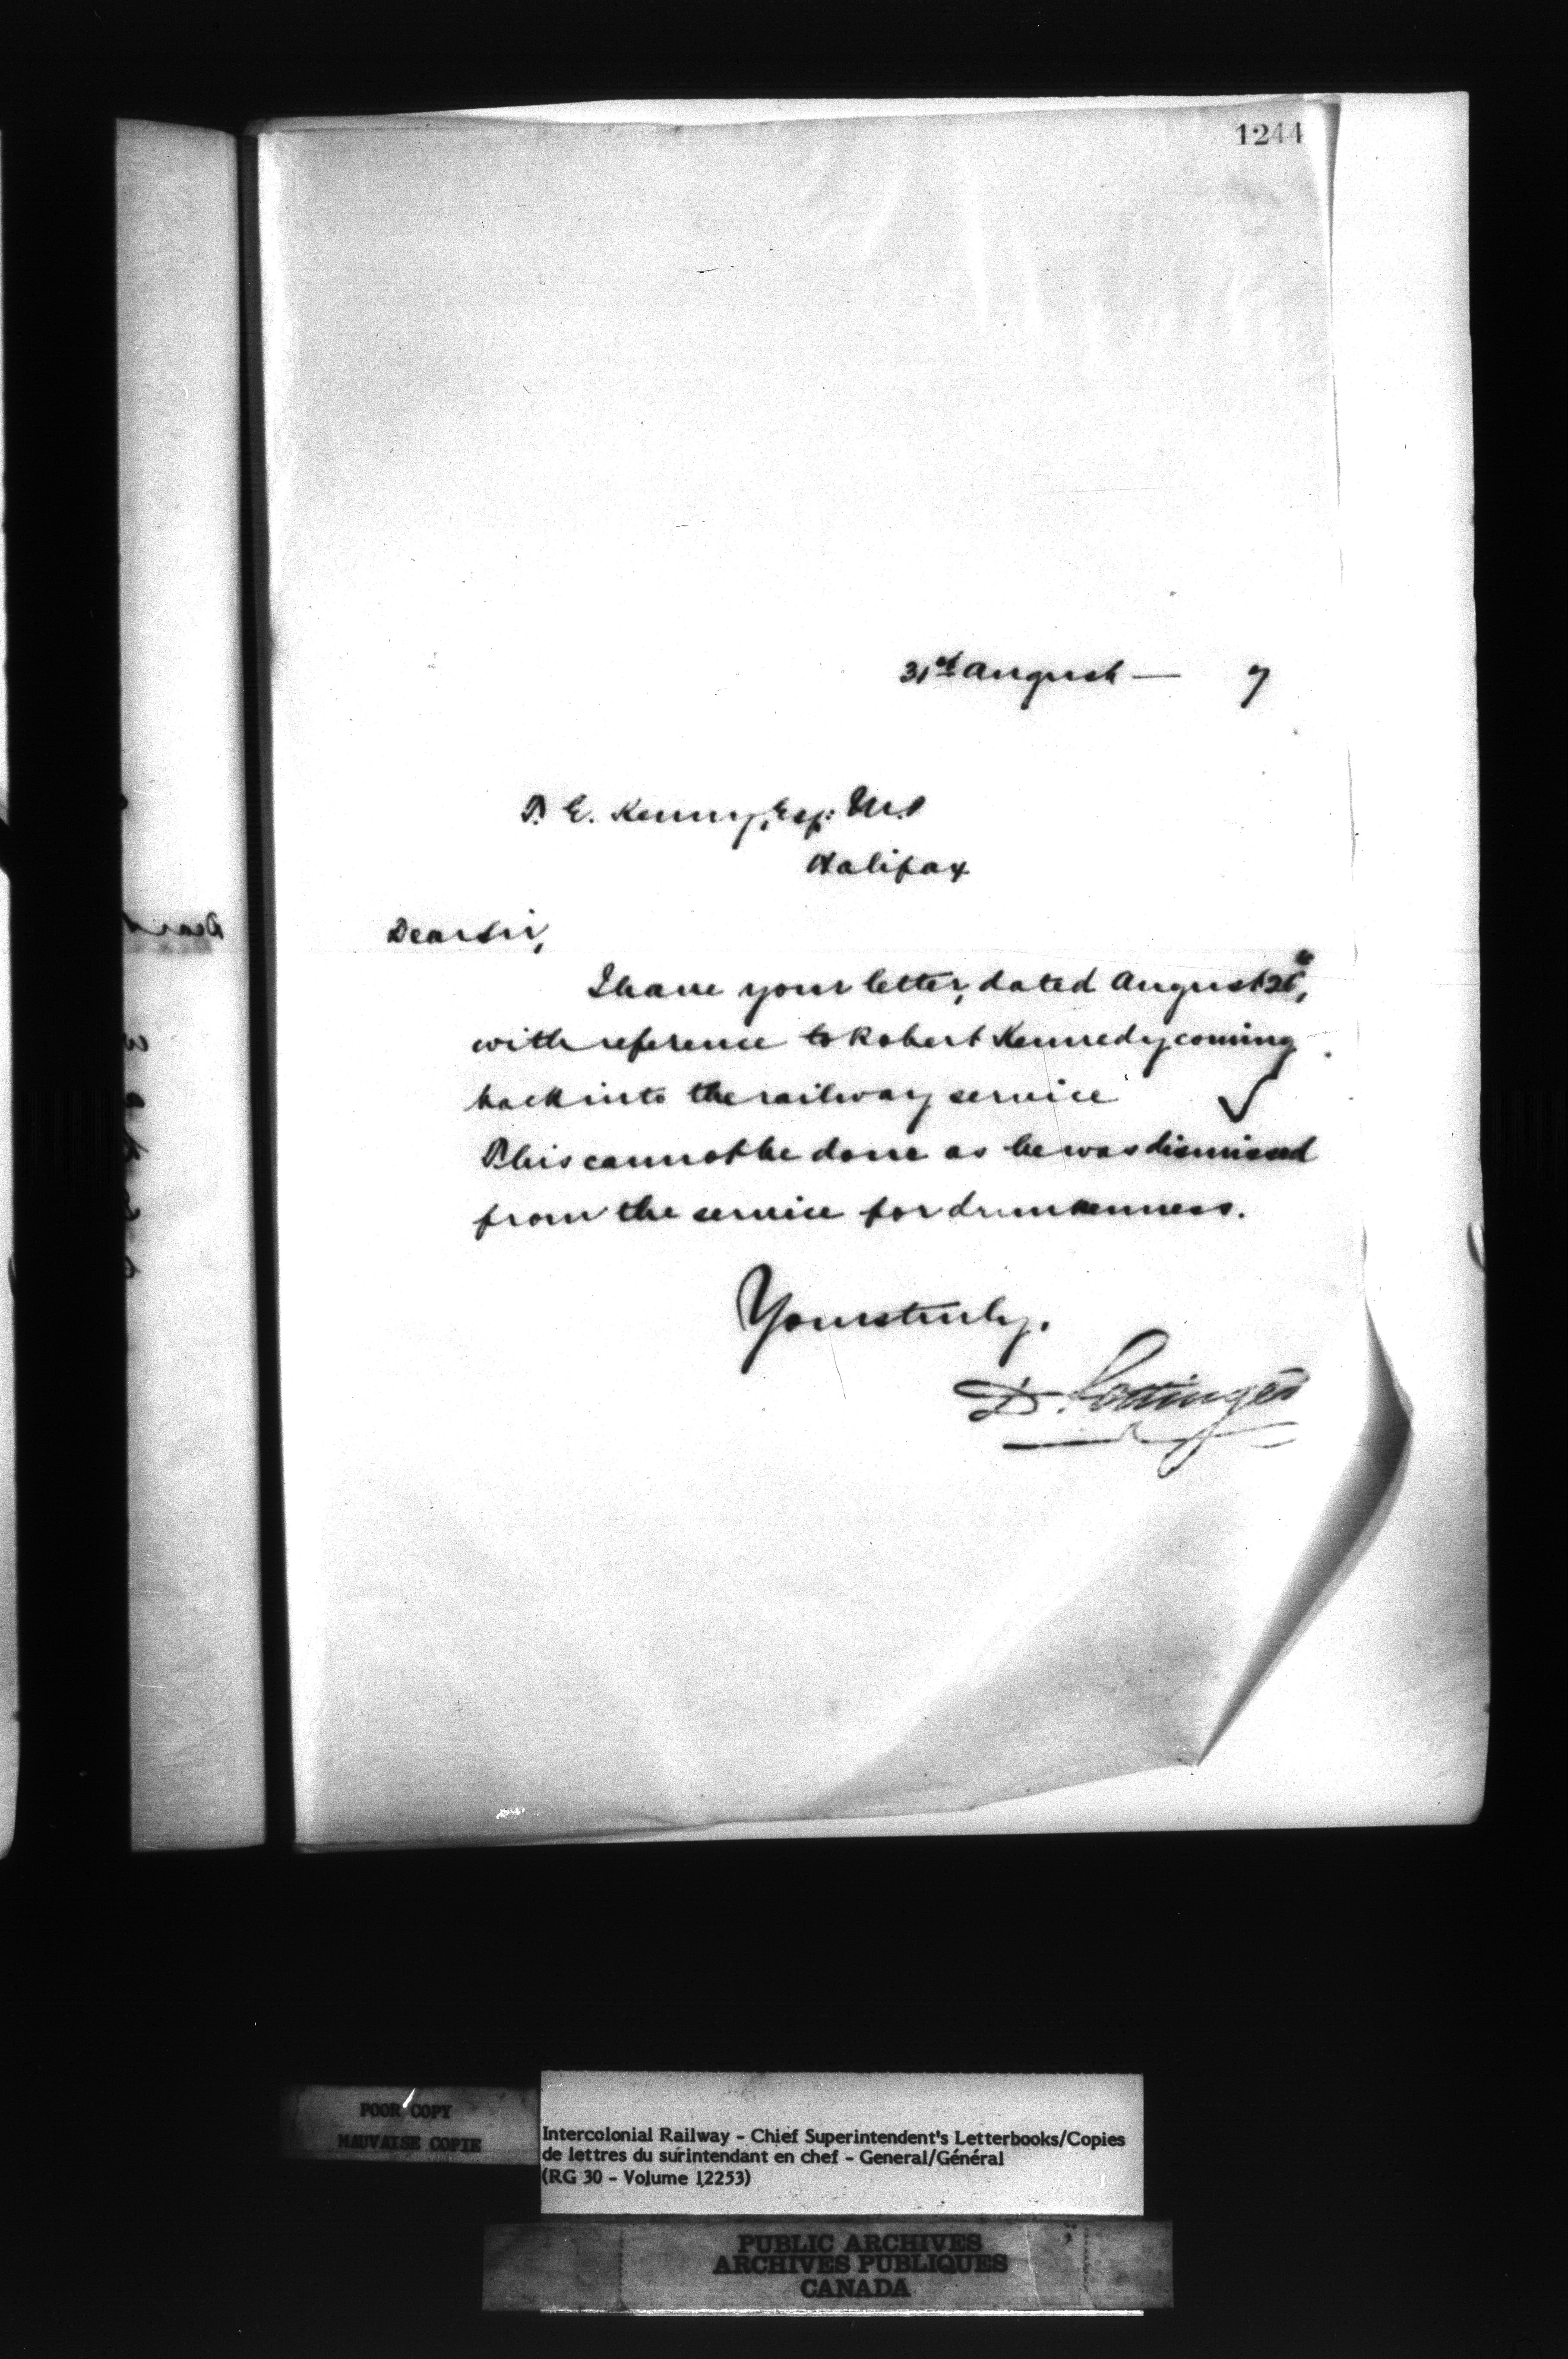 1244
31st August — 7
T. E. Kenny, Esq: M.P
Halifax
Dear Sir,
I have your letter, dated August 26th,
with reference to Robert Kennedy coming
back into the railway service
This cannot be done as he was dismissed
from the service for drunkenness.
Yours truly.
D. Pottinger
POOR COPY
MAUVAISE COPIE
Intercolonial Railway - Chief Superintendent's Letterbooks/Copies
de lettres du surintendant en chef - General/Général
(RG 30 - Volume 12253)
PUBLIC ARCHIVES
ARCHIVES PUBLIQUES
CANADA